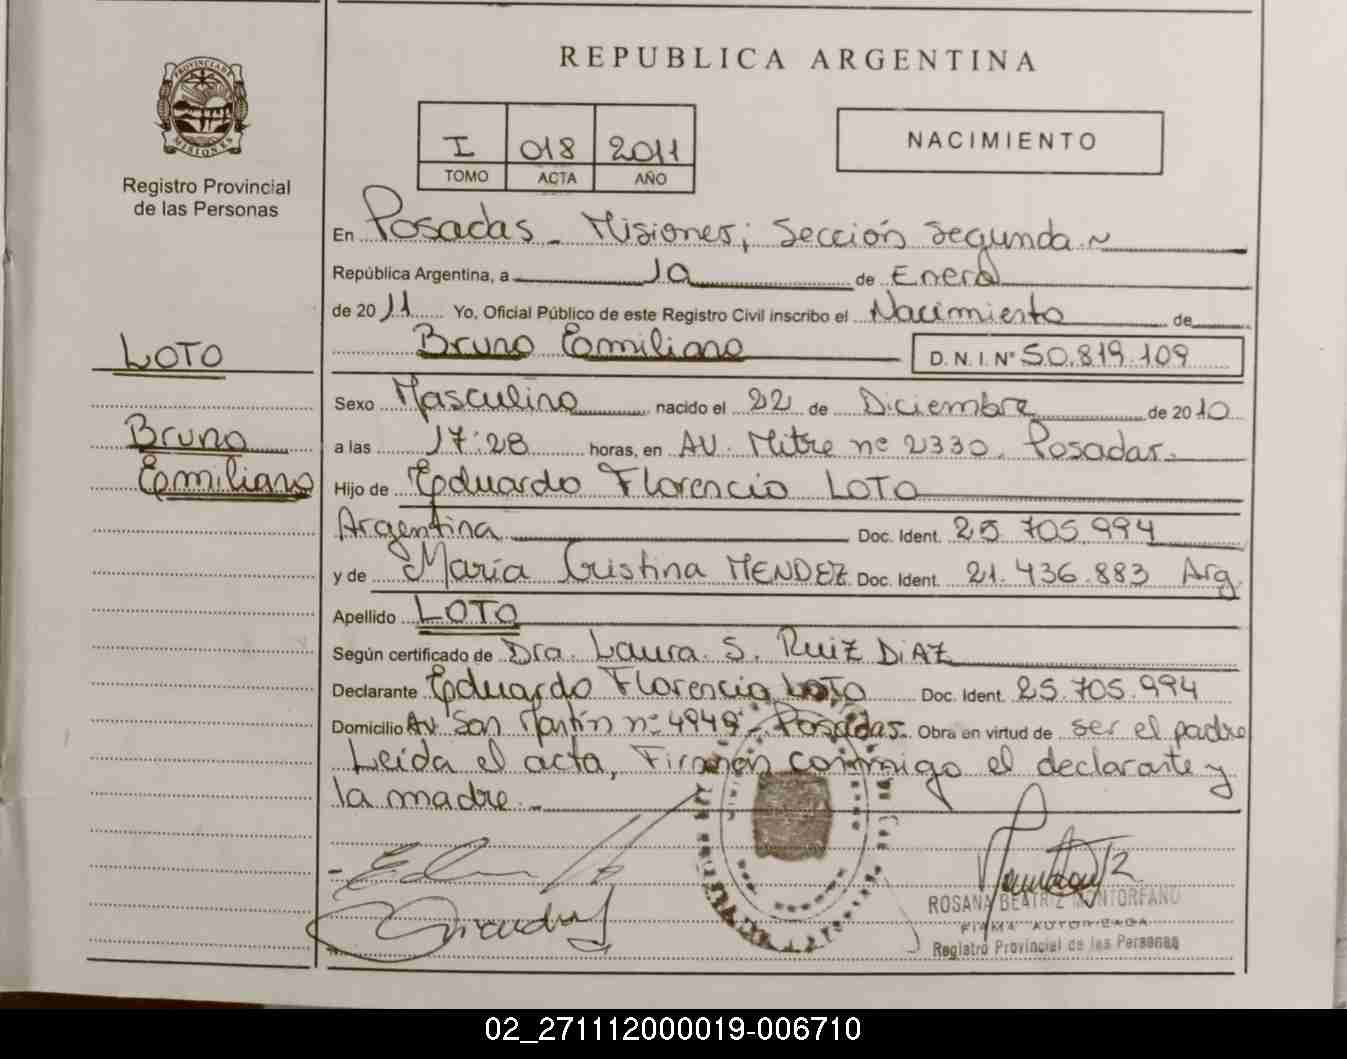 REPUBLICA ARGENTINA
PROVINCIA DE MISIONES
Registro Provincial
de las Personas
I 018 2011
TOMO ACTA AÑO
NACIMIENTO
En Posadas - Misiones; Sección Segunda ~
República Argentina, a 10 de Enero
de 2011 Yo, Oficial Público de este Registro Civil inscribo el Nacimiento de
Bruno Emiliano D.N.I. Nº 50.819.109
LOTO
Bruno
Emiliano
Sexo Masculino nacido el 22 de Diciembre de 2010
a las 17:28 horas, en AV. Mitre nº 2330. Posadas.
Hijo de Eduardo Florencio LOTO
Argentina Doc. Ident. 25.705.994
y de María Cristina MENDEZ Doc. Ident. 21.436.883 Arg.
Apellido LOTO
Según certificado de Dra. Laura. S. RUIZ DIAZ
Declarante Eduardo Florencio LOTO Doc. Ident. 25.705.994
Domicilio Av. San Martín nº 4949 - Posadas. Obra en virtud de ser el padre
Leída el acta, Firman conmigo el declarante y
la madre. -
ROSANA BEATRIZ MONTORFANO
FIRMA AUTORIZADA
Registro Provincial de las Personas
02_271112000019-006710